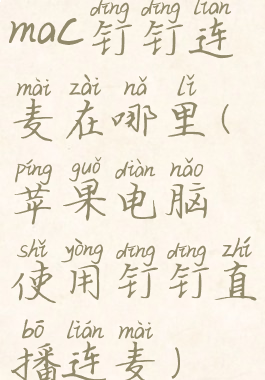 dīng dīng lián
mac钉钉连
mài zài nǎ lǐ
麦在哪里(
píng guǒ diàn nǎo
苹果电脑
shǐ yòng dīng dīng zhí
使用钉钉直
bō lián mài
播连麦)